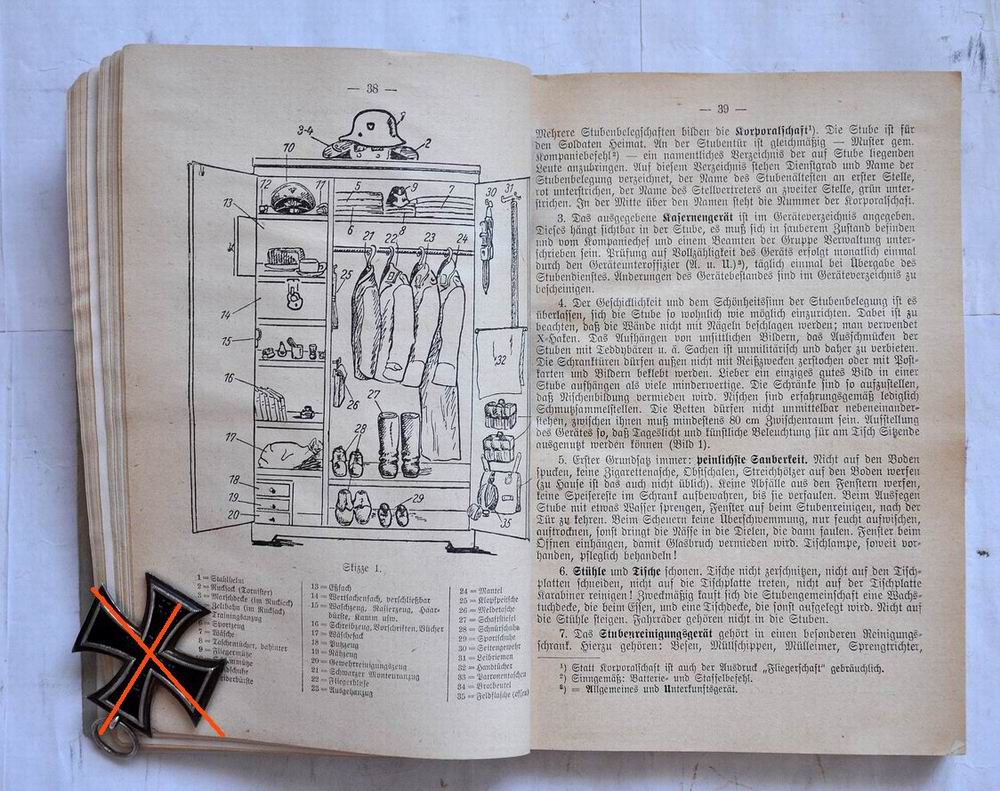 — 38 —
3-4
1
2
10
12
11
5
9
7
30
31
13
6
8
21
22
23
24
25
14
15
32
16
26
27
17
28
18
19
20
29
35
Skizze 1.
1 = Stahlhelm
2 = Rucksack (Tornister)
3 = Marschdecke (im Rucksack)
Zeltbahn (im Rucksack)
Trainingsanzug
6 = Sportzeug
7 = Wäsche
8 = Taschentücher, dahinter
9 = Fliegermütze
13 = Eßfach
14 = Wertsachenfach, verschließbar
15 = Waschzeug, Rasierzeug, Haar-
bürste, Kamm usw.
16 = Schreibzeug, Vorschriften, Bücher
17 = Wäschesack
18 = Putzzeug
19 = Nähzeug
20 = Gewehrreinigungszeug
21 = Schwarzer Monteuranzug
22 = Fliegerbluse
23 = Ausgehanzug
24 = Mantel
25 = Klopfpeitsche
26 = Meldetasche
27 = Schaftstiefel
28 = Schnürschuhe
29 = Sportschuhe
30 = Seitengewehr
31 = Leibriemen
32 = Handtücher
33 = Patronentaschen
34 = Brotbeutel
35 = Feldflasche (offen)
— 39 —
Mehrere Stubenbelegschaften bilden die Korporalschaft¹). Die Stube ist für
den Soldaten Heimat. An der Stubentür ist gleichmäßig — Muster gem.
Kompaniebefehl²) — ein namentliches Verzeichnis der auf Stube liegenden
Leute anzubringen. Auf diesem Verzeichnis stehen Dienstgrad und Name der
Stubenbelegung verzeichnet, der Name des Stubenältesten an erster Stelle,
rot unterstrichen, der Name des Stellvertreters an zweiter Stelle, grün unter-
strichen. In der Mitte über den Namen steht die Nummer der Korporalschaft.
3. Das ausgegebene Kasernengerät ist im Geräteverzeichnis angegeben.
Dieses hängt sichtbar in der Stube, es muß sich in sauberem Zustand befinden
und vom Kompaniechef und einem Beamten der Gruppe Verwaltung unter-
schrieben sein. Prüfung auf Vollzähligkeit des Geräts erfolgt monatlich einmal
durch den Geräteunteroffizier (A. u. U.)³), täglich einmal bei Übergabe des
Stubendienstes. Änderungen des Gerätebestandes sind im Geräteverzeichnis zu
bescheinigen.
4. Der Geschicklichkeit und dem Schönheitssinn der Stubenbelegung ist es
überlassen, sich die Stube so wohnlich wie möglich einzurichten. Dabei ist zu
beachten, daß die Wände nicht mit Nägeln beschlagen werden; man verwendet
X-Haken. Das Aufhängen von unsittlichen Bildern, das Ausschmücken der
Stuben mit Teddybären u. ä. Sachen ist unmilitärisch und daher zu verbieten.
Die Schranktüren dürfen außen nicht mit Reißzwecken zerstochen oder mit Post-
karten und Bildern beklebt werden. Lieber ein einziges gutes Bild in einer
Stube aufhängen als viele minderwertige. Die Schränke sind so aufzustellen,
daß Nischenbildung vermieden wird. Nischen sind erfahrungsgemäß lediglich
Schmutzsammelstellen. Die Betten dürfen nicht unmittelbar nebeneinander-
stehen, zwischen ihnen muß mindestens 80 cm Zwischenraum sein. Aufstellung
des Gerätes so, daß Tageslicht und künstliche Beleuchtung für am Tisch Sitzende
ausgenutzt werden können (Bild 1).
5. Erster Grundsatz immer: peinlichste Sauberkeit. Nicht auf den Boden
spucken, keine Zigarettenasche, Obstschalen, Streichhölzer auf den Boden werfen
(zu Hause ist das auch nicht üblich). Keine Abfälle aus den Fenstern werfen,
keine Speisereste im Schrank aufbewahren, bis sie verfaulen. Beim Ausfegen
Stube mit etwas Wasser sprengen, Fenster auf beim Stubenreinigen, nach der
Tür zu kehren. Beim Scheuern keine Überschwemmung, nur feucht aufwischen,
auftrocknen, sonst dringt die Nässe in die Dielen, die dann faulen. Fenster beim
Öffnen einhängen, damit Glasbruch vermieden wird. Tischlampe, soweit vor-
handen, pfleglich behandeln!
6. Stühle und Tische schonen. Tische nicht zerschnitzen, nicht auf den Tisch-
platten schneiden, nicht auf die Tischplatte treten, nicht auf der Tischplatte
Karabiner reinigen! Zweckmäßig kauft sich die Stubengemeinschaft eine Wachs-
tuchdecke, die beim Essen, und eine Tischdecke, die sonst aufgelegt wird. Nicht auf
die Stühle steigen. Fahrräder gehören nicht in die Stuben.
7. Das Stubenreinigungsgerät gehört in einen besonderen Reinigungs-
schrank. Hierzu gehören: Besen, Müllschippen, Mülleimer, Sprengtrichter,
¹) Statt Korporalschaft ist auch der Ausdruck „Fliegerschaft" gebräuchlich.
²) Sinngemäß: Batterie- und Staffelbefehl.
³) = Allgemeines und Unterkunftsgerät.